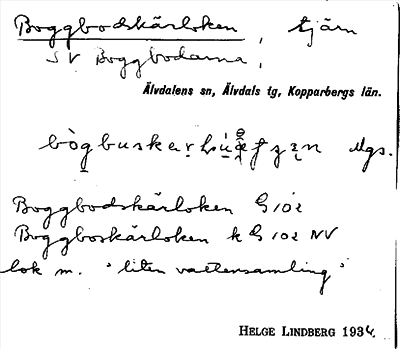 Boggbodskärloken, tjärn
SV Boggbodarna,
Älvdalens sn, Älvdals tg, Kopparbergs län.
Mgs.
Boggbodskärloken G 102
Boggboskärloken k G 102 NV
lok m. 'liten vattensamling'
HELGE LINDBERG 1934.